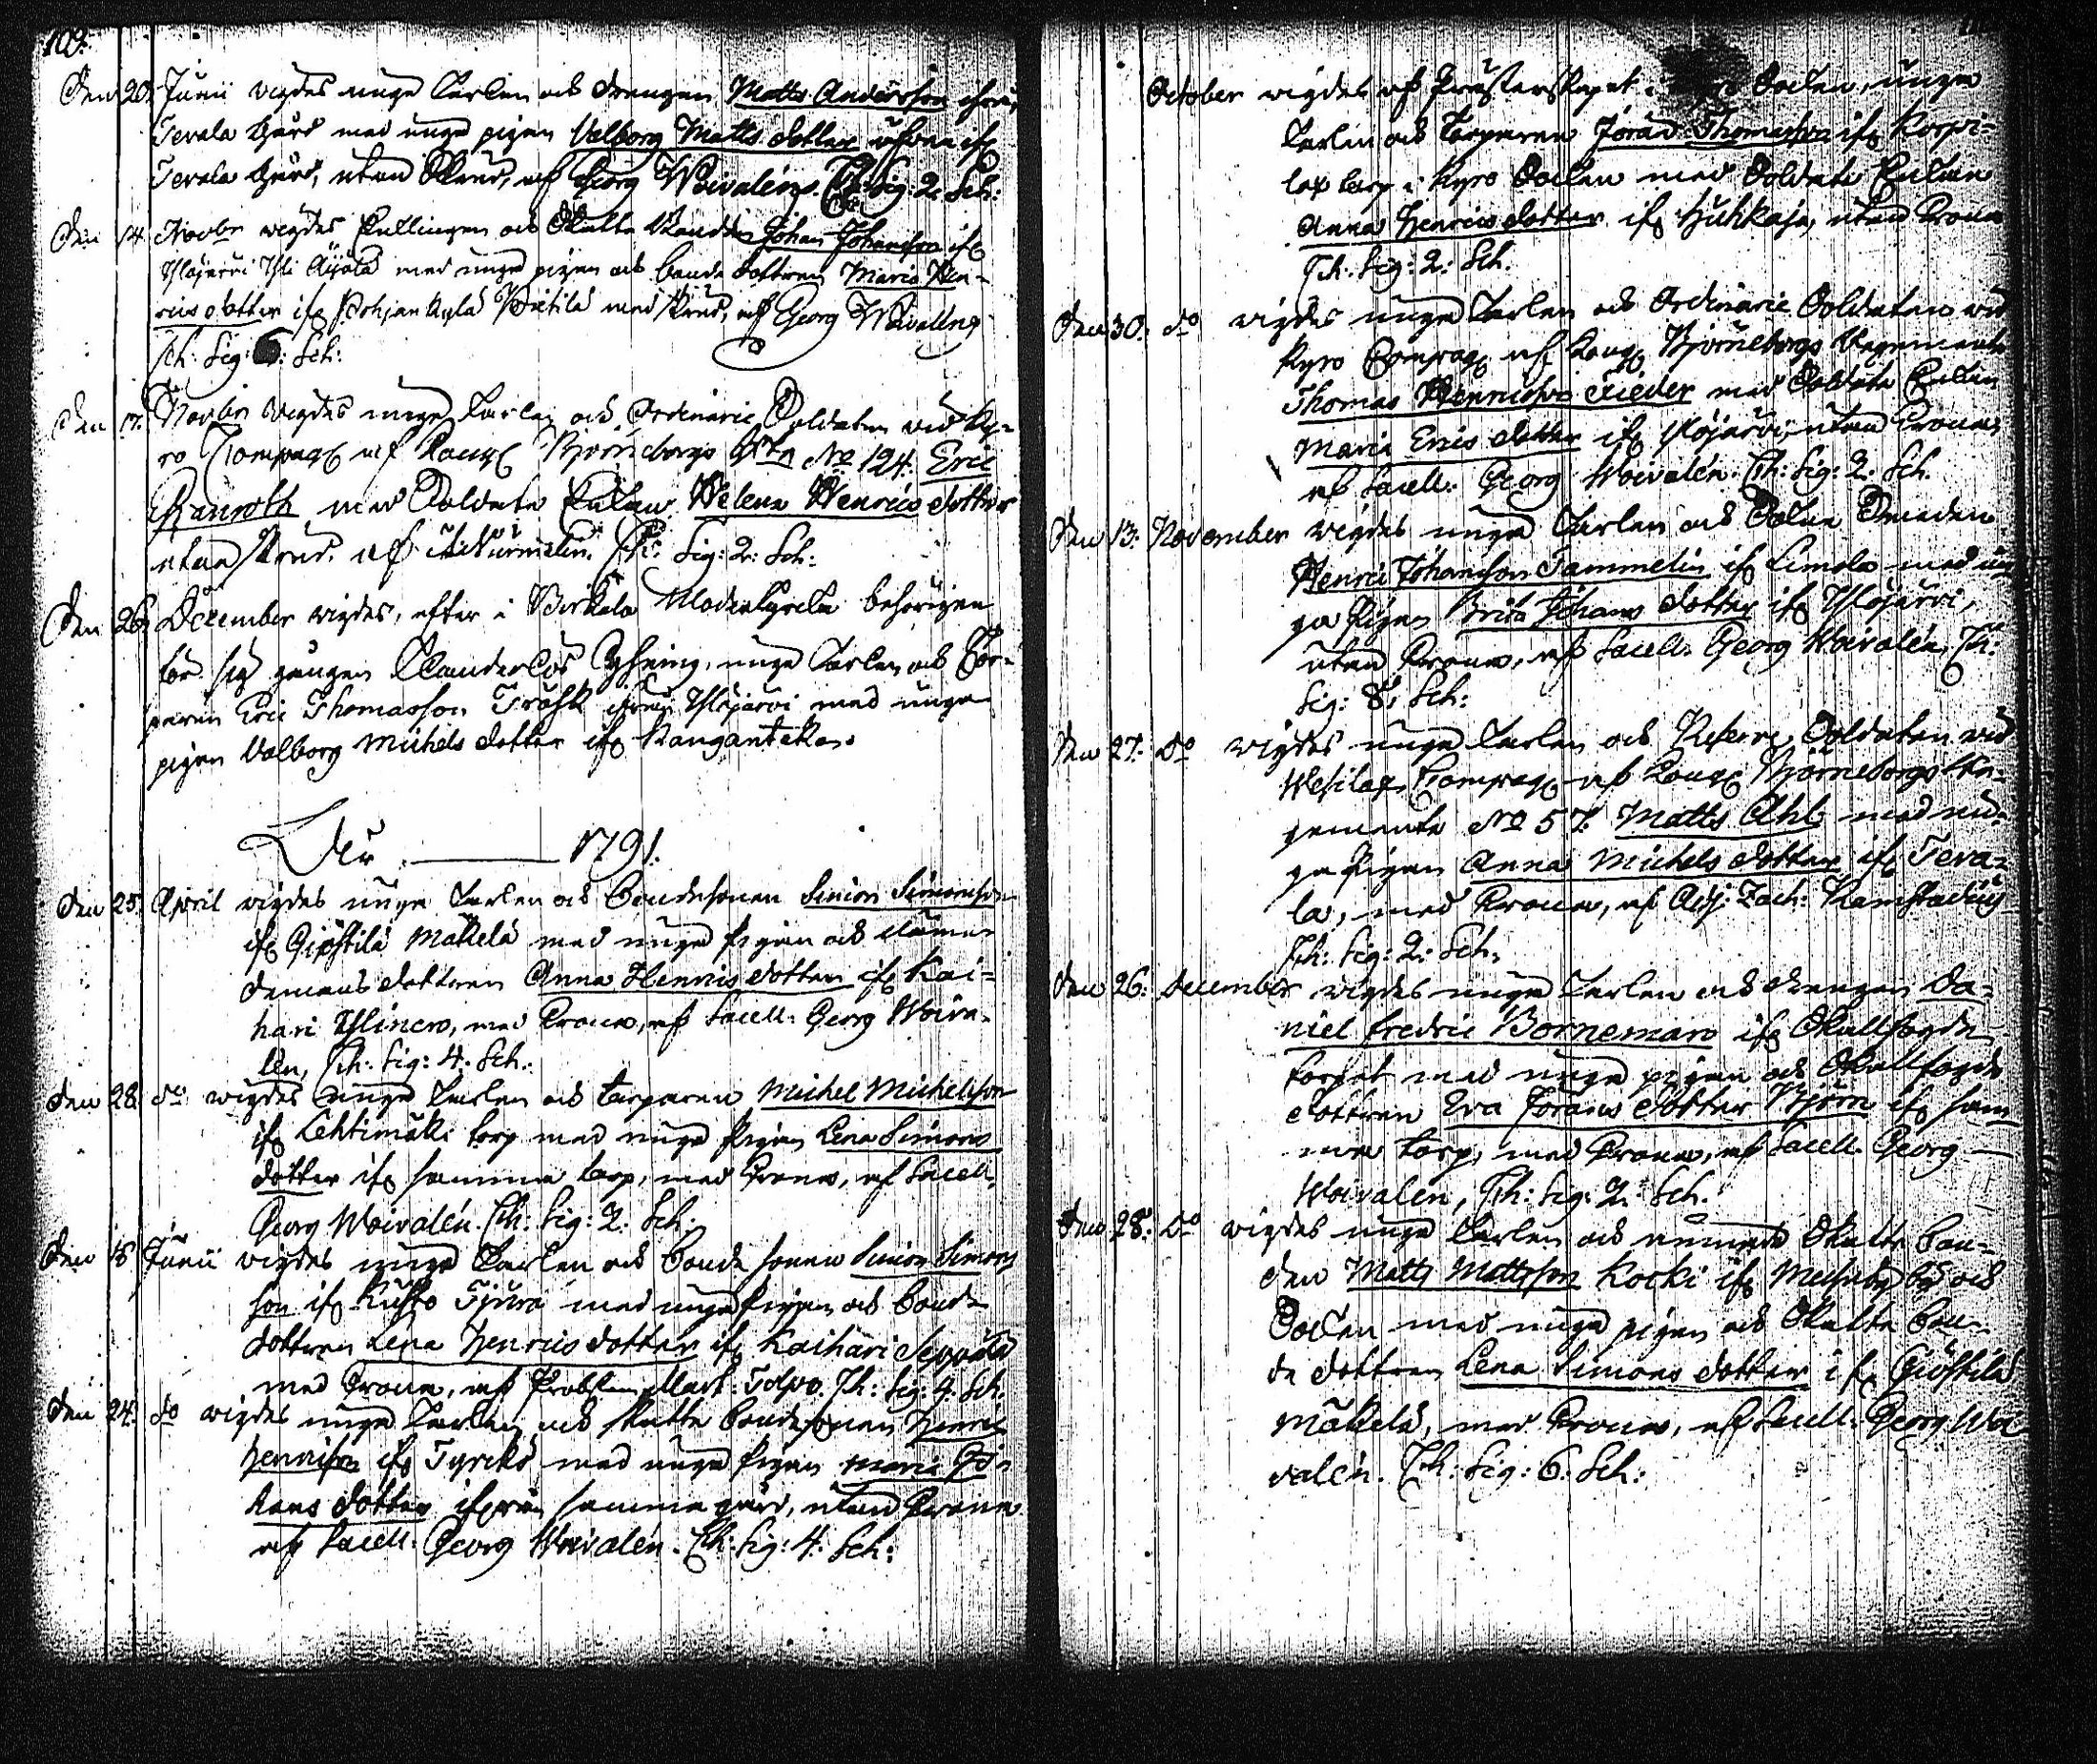 109.
Den 20. Junii vigdes unge Karlen och drengen Matts Andersson ifrån
Tevala Gård med unga pigan Valborg Matts dotter ifrån
Tevala Gård, utan Skrud, af Georg Woivalén. Th: Sig: 2. Sch:
Den 14 Novbr vigdes Enklingen och Skatte Bonden Johan Johansson ifr
Ylöjärvi Yli Äijälä med unga pigan och bonde dottren Maria Hen-
rics dotter ifr Pohjankylä Pietilä med Skrud, af Georg Woivalén
Th: Sig: 6: Sch:
Den 17. Novbr vigdes unge Karlen och Ordinarie Soldaten vid Ky-
ro Compagn af Kongl Björneborgs No 124. Eric
Ranroth med Soldate Enkan Helena Henrics dotter
utan Skrud. af Th: Sig: 2: Sch:
Den 26. December vigdes, efter i Birkala Moderkyrka behörigen
för sig gången Clanderlös Lysning, unge Karlen och Tor-
paren Eric Thomasson Träsk ifrån Ylöjärvi med unga
pigan Valborg Michels dotter ifr Kangantaka.
1791.
Den 25. April vigdes unge Karlen och bondesonen Simon Simonsson
ifr Giöstilä Mäkelä med unga pigan och Nämn-
demans dottren Anna Henrics dotter ifr Kai-
hari Ylinen, med Krona, af Sacell. Georg Woiva-
lén, Th: Sig: 4. Sch:
Den 28. do vigdes unge Karlen och torparen Michel Michelsson
ifr Lehtimäki torp med unga pigan Lena Simons
dotter ifr samma torp, med Krona, af Sacell.
Georg Woivalén. Th: Sig: 2. Sch:
Den 18 Junii vigdes unge Karlen och bonde sonen Simon Simons
son ifr Kusto med unga pigan och bonde
dottren Lena Henrics dotter ifr Kaihari Seppälä
med Krona, af Probsten Mart: Tolpo. Th: Sig: 4. Sch.
Den 24. do vigdes unge Karlen och skatte bondesonen Henric
Henricsson ifr Tyrckö med unga pigan Maria Jo-
hans dotter ifrån samma gård, utan Krona
af Sacell. Georg Woivalén. Th: Sig: 4. Sch:
October vigdes af Prästerskapet i Kyro Socken, unge
Karlen och Torparen Jöran Thomasson ifr Korpi-
lax torp i Kyro Socken med Soldate Enkan
Anna Henrics dotter ifr Huhkaja, utan Krona
Th: Sig: 2: Sch.
Den 30. do vigdes unge Karlen och Ordinarie Soldaten vid
Kyro Compagn af Kongl Björneborgs Regemente
Thomas Henricsson Fieder med Soldate Enkan
Maria Erics dotter ifr Ylöjärvi, utan Krona,
af Sacell. Georg Woivalén. Th: Sig: 2. Sch.
Den 13. November vigdes unge Karlen och Sockne Smeden
Henric Johansson Tammelin ifr Limola med un-
ga Pigan Brita Johans dotter ifr Ylöjärvi,
utan Krona, af Sacell. Georg Woivalén, Th:
Sig: 8. Sch:
Den 27. do vigdes unge Karlen och Reserve Soldaten vid
Wesilax Compagn af Kongl Björneborgs Re-
gemente No 57. Matts Ahl med un-
ga Pigan Anna Michels dotter ifr Teva-
la, med Krona, af Adj: Zach: Ramstadius
Th: Sig: 2: Sch.
Den 26. December vigdes unge Karlen och drengen Da-
niel Fredric Borneman ifr Skallfogde
torpet med unga pigan och Skallfogde
dottren Eva Jörans dotter Björn ifr sam
ma torp, med Krona, af Sacell. Georg
Woivalén, Th: Sig: 2. Sch.
Den 28. do vigdes unge Karlen och Skatte Bon-
den Matts Mattsson Kocki ifr by och
Socken med unga pigan och Skatte Bon-
de dottren Lena Simons dotter ifr Giöstilä
Mäkelä, med Krona, af Sacell. Georg Woi
valén. Th: Sig: 6. Sch: